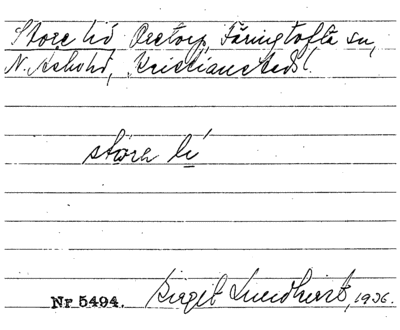 Store lid Öretorp, Färingtofta sn,
N. Åsbohd, Kristianstads l.
störa lí
Nr 5494. Birgit Lundkvist, 1936.